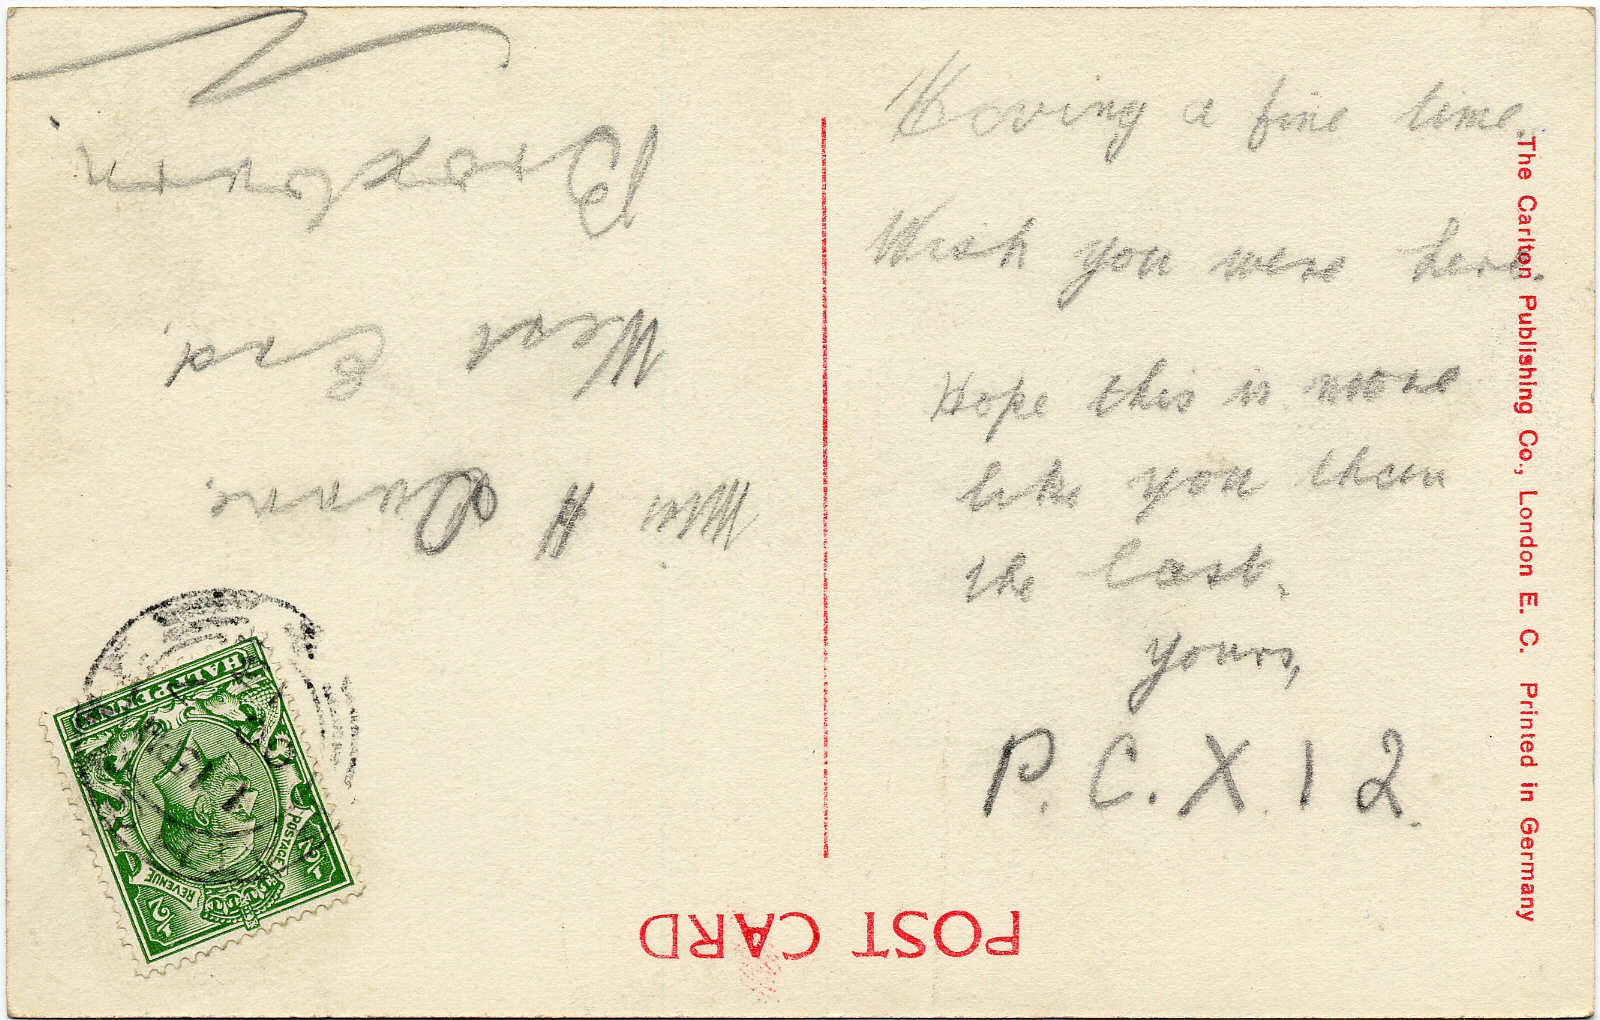 Having a fine time.
Wish you were here.
Hope this is more
like you than
the last.
yours,
P.C.X.12.
POST CARD
Miss H Quare.
West End.
Broxburn
The Carlton Publishing Co., London E. C. Printed in Germany
HALFPENNY
POSTAGE
REVENUE
½
½